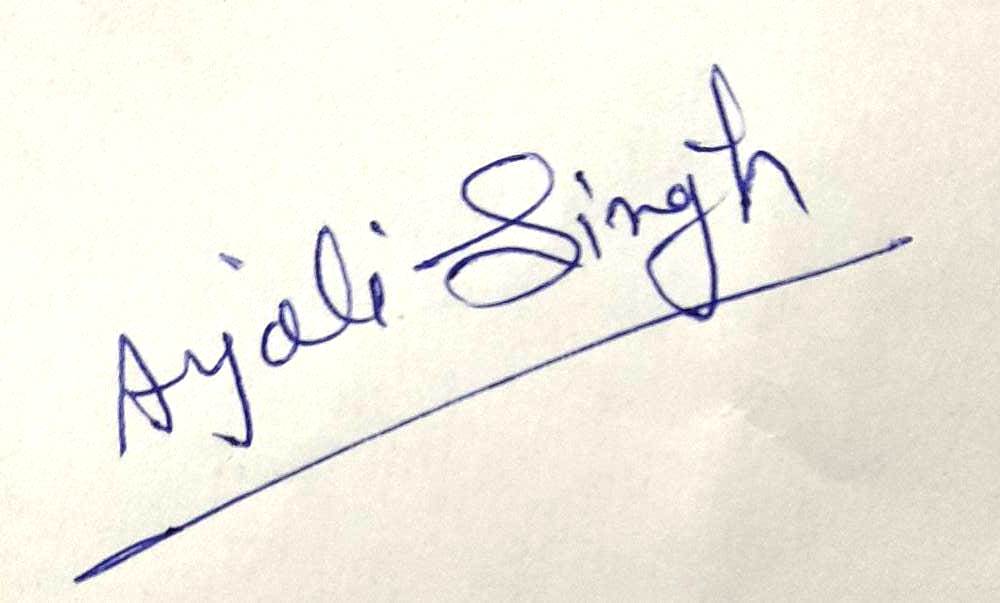 Anjali Singh